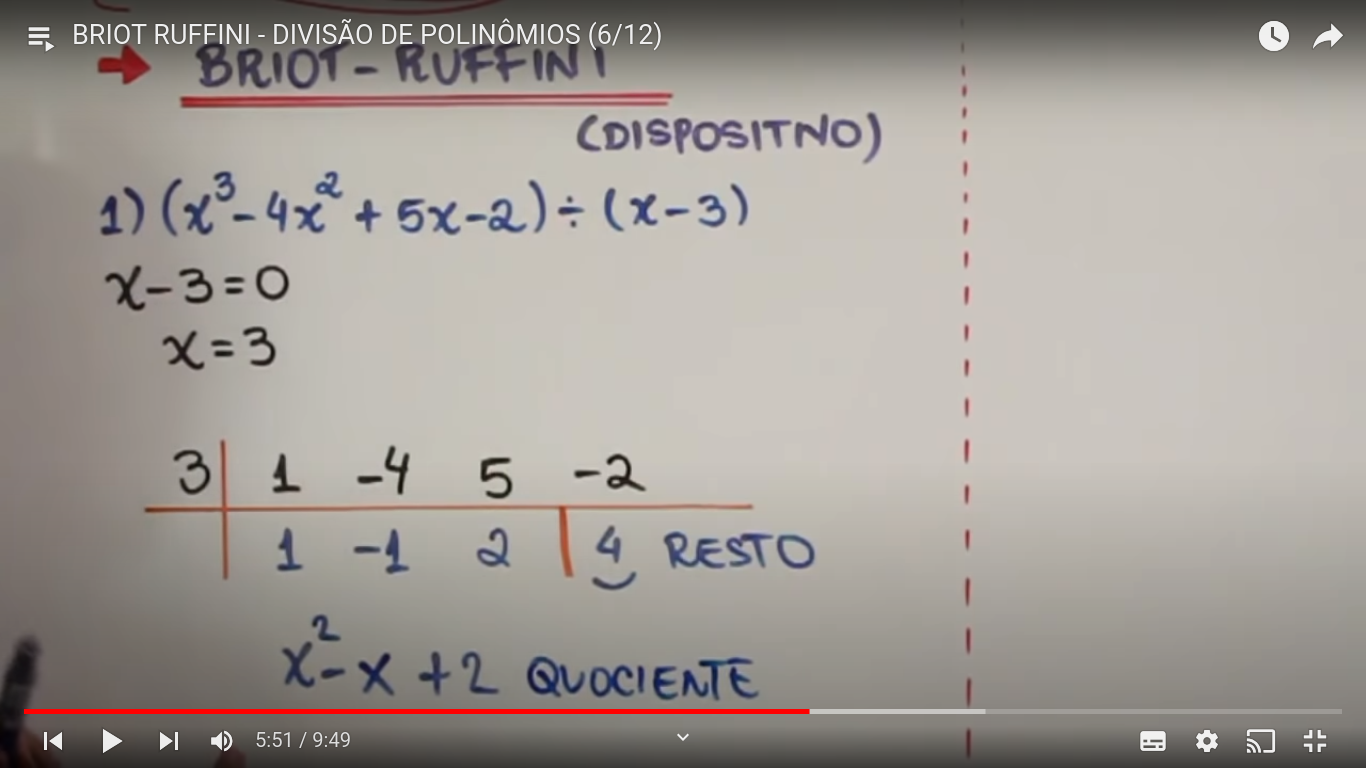 BRIOT RUFFINI - DIVISÃO DE POLINÔMIOS (6/12)
BRIOT-RUFFINI
(DISPOSITIVO)
1) (x³ - 4x² + 5x - 2) ÷ (x - 3)
x - 3 = 0
x = 3
3 1 -4 5 -2
1 -1 2 4 RESTO
x² - x + 2 QUOCIENTE
5:51 / 9:49